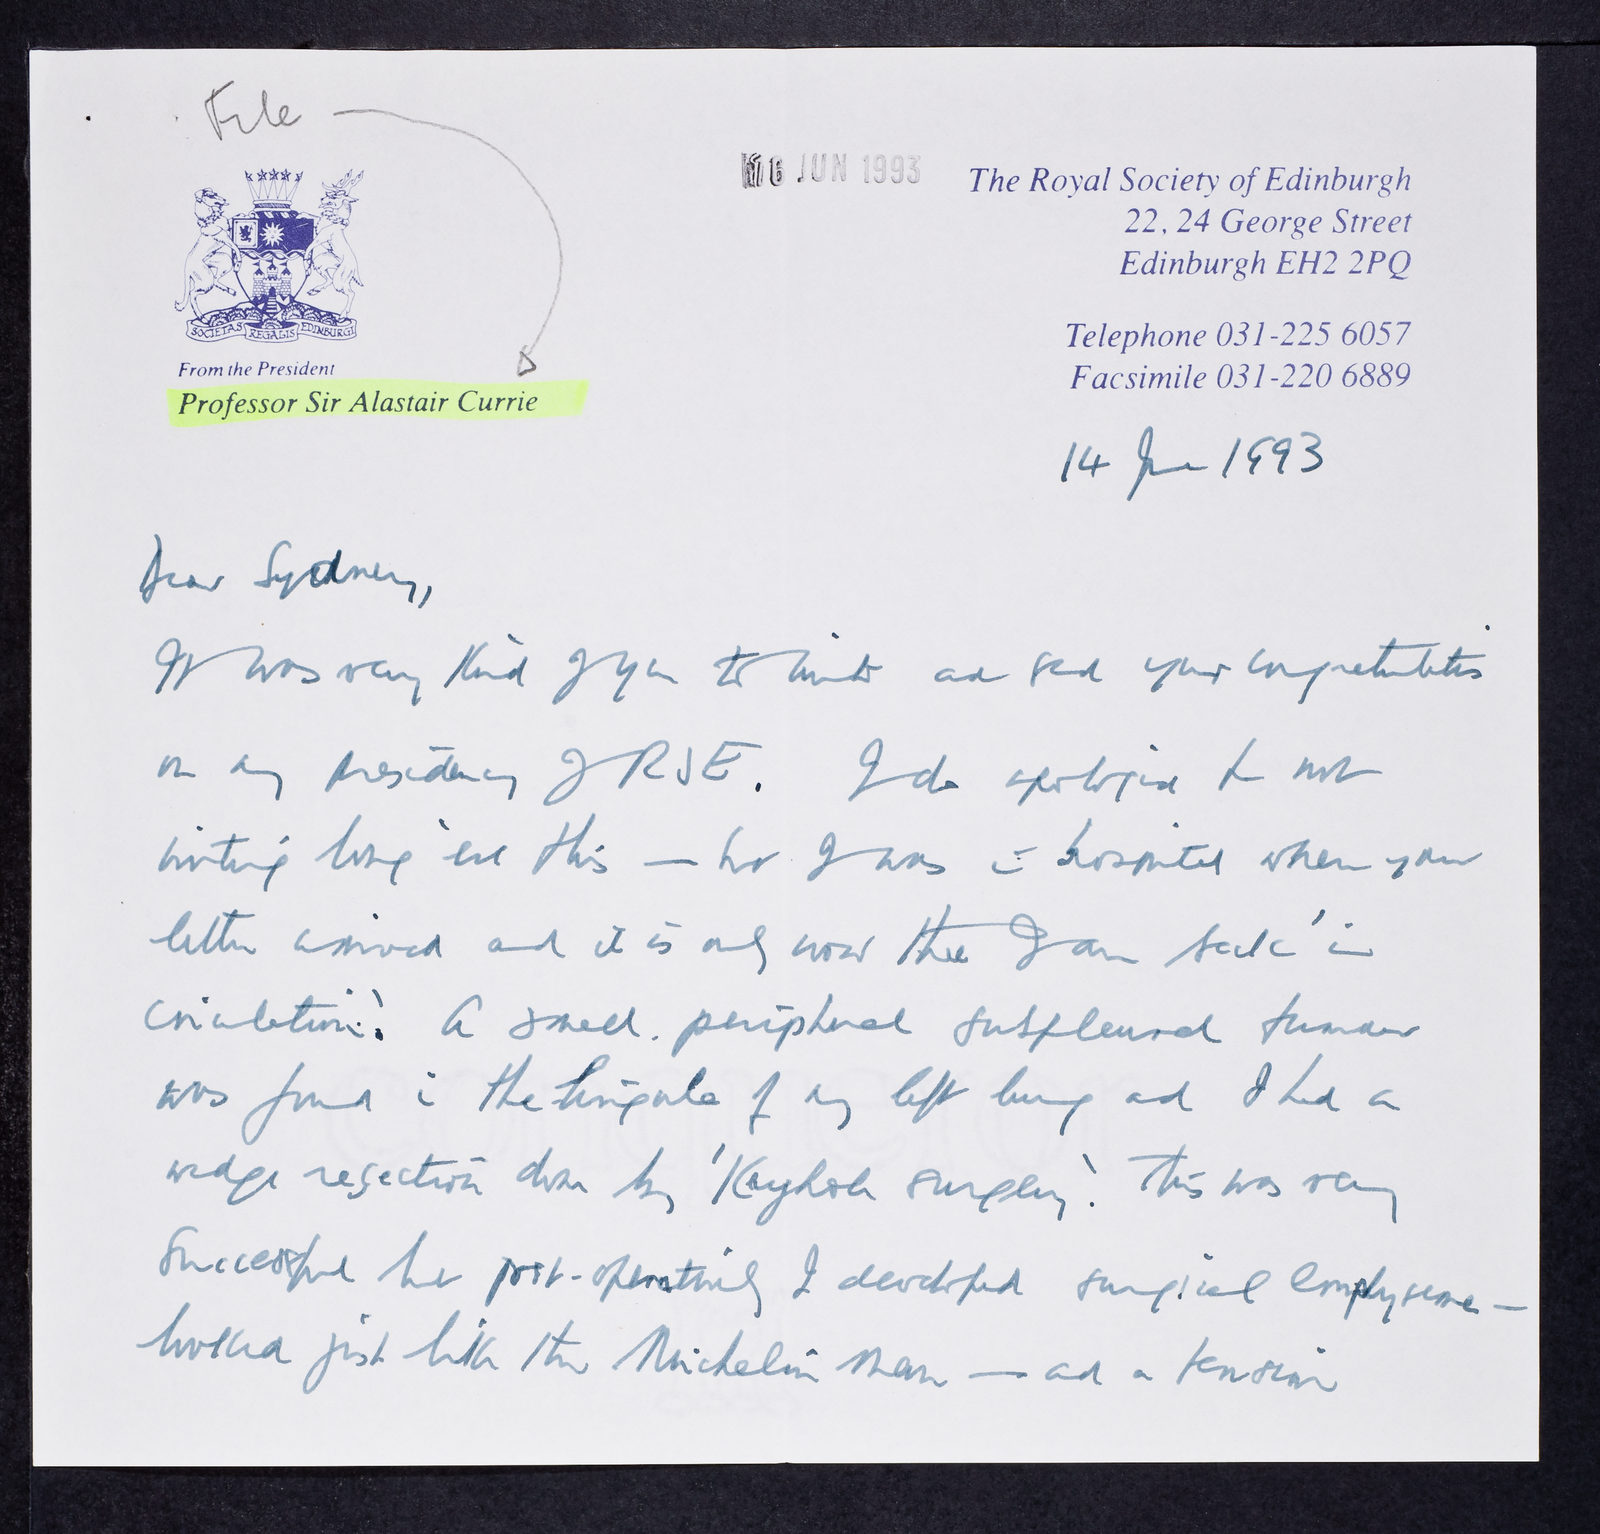 File
16 JUN 1993
The Royal Society of Edinburgh
22, 24 George Street
Edinburgh EH2 2PQ
Telephone 031-225 6057
Facsimile 031-220 6889
SOCIETAS REGALIS EDINBURGI
From the President
Professor Sir Alastair Currie
14 June 1993
Dear Sydney,
It was very kind of you to write and send your congratulations
on my presidency of RSE. I do apologise for not
writing long 'ere this — but I was in hospital when your
letter arrived and it is only now that I am back 'in
circulation'. A small peripheral subpleural tumour
was found in the lingula of my left lung and I had a
wedge resection done by 'Keyhole surgery'. This was very
successful but post-operatively I developed surgical emphysema —
looked just like the Michelin man — and a tension